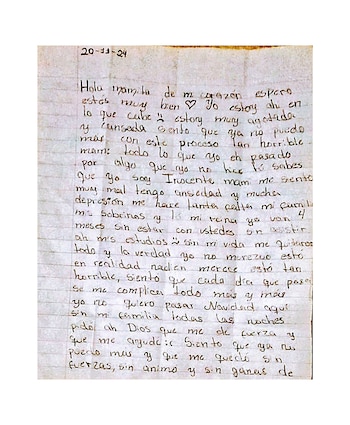 20-11-24
Hola mamita de mi corazon espero
estés muy bien ♡ Yo estoy ah, en
lo que cabe estoy muy agotada
y cansada siento que ya no puedo
más con este proceso tan horrible
mami todo lo que yo eh pasado
por algo que yo no hice tú sabes
que yo soy Inocente mami me siento
muy mal tengo ansiedad y mucha
depresión me hace tanta falta mi familia
mis sobrinas y tú mi reina ya van 4
meses sin estar con ustedes sin asistir
ah mis estudios sin mi vida me quitaron
todo y la verdad yo no merezco esto
en realidad nadien merece esto tan
horrible, siento que cada día que pasa
se me complica todo mas y más
yo no quiero pasar Navidad aquí
sin mi familia todas las noches
pido ah Dios que me de fuerza y
que me ayude :c Siento que ya no
puedo mas y que me quedo sin
fuerzas, sin animo y sin ganas de